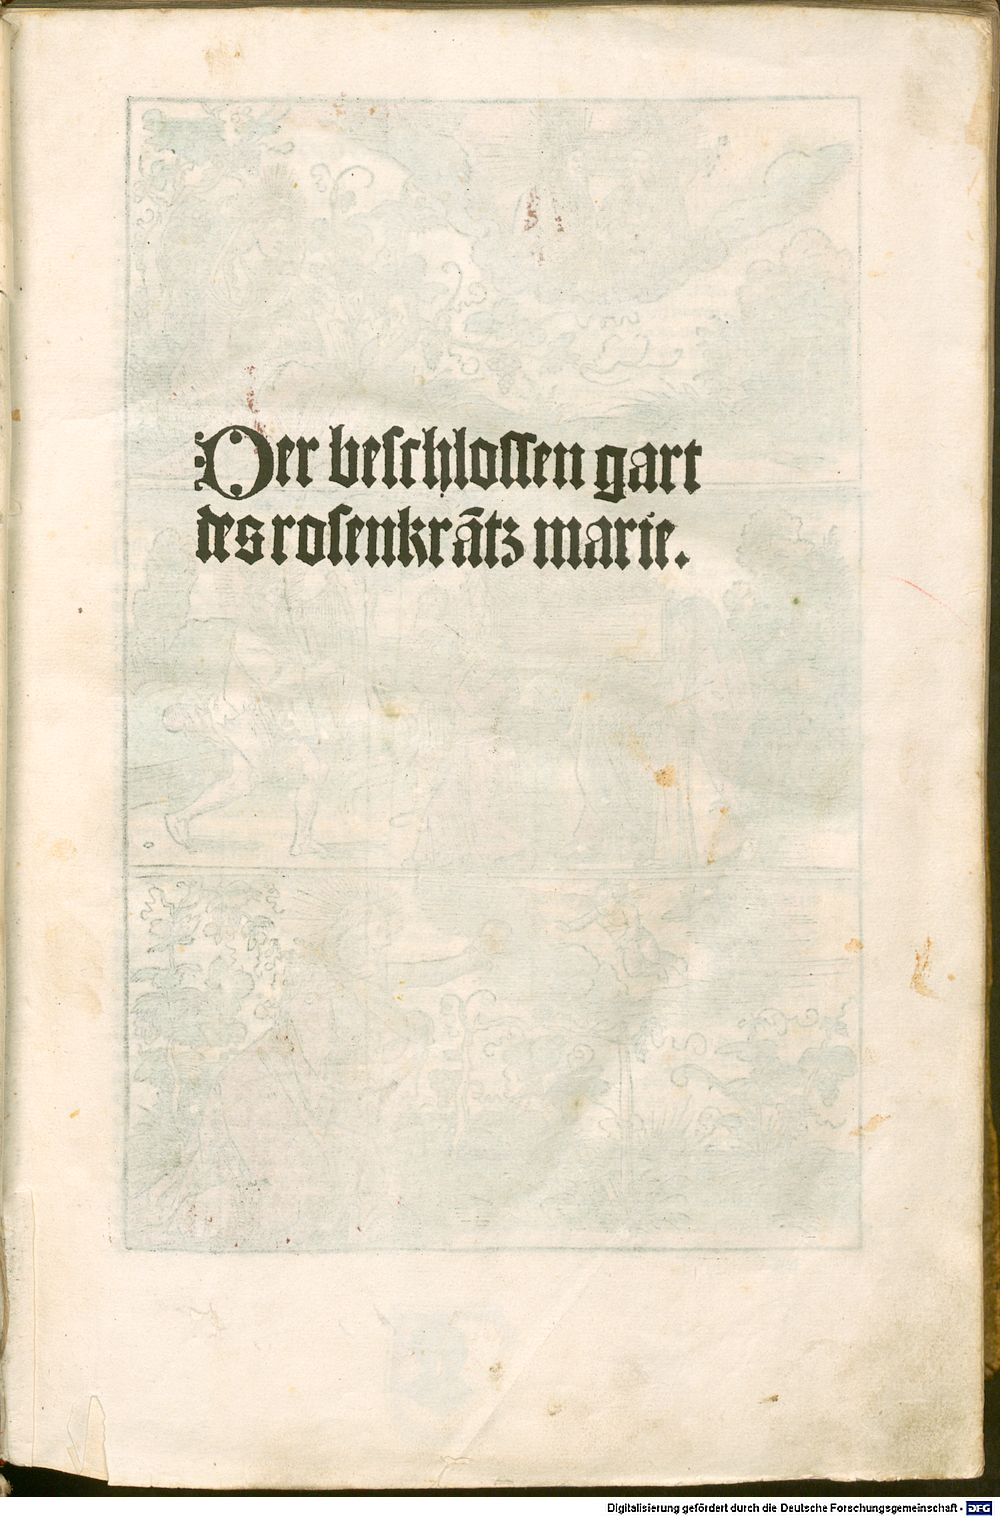 Der beſchloſſen gart
des roſenkrãtz marie.
Digitalisierung gefördert durch die Deutsche Forschungsgemeinschaft - DFG